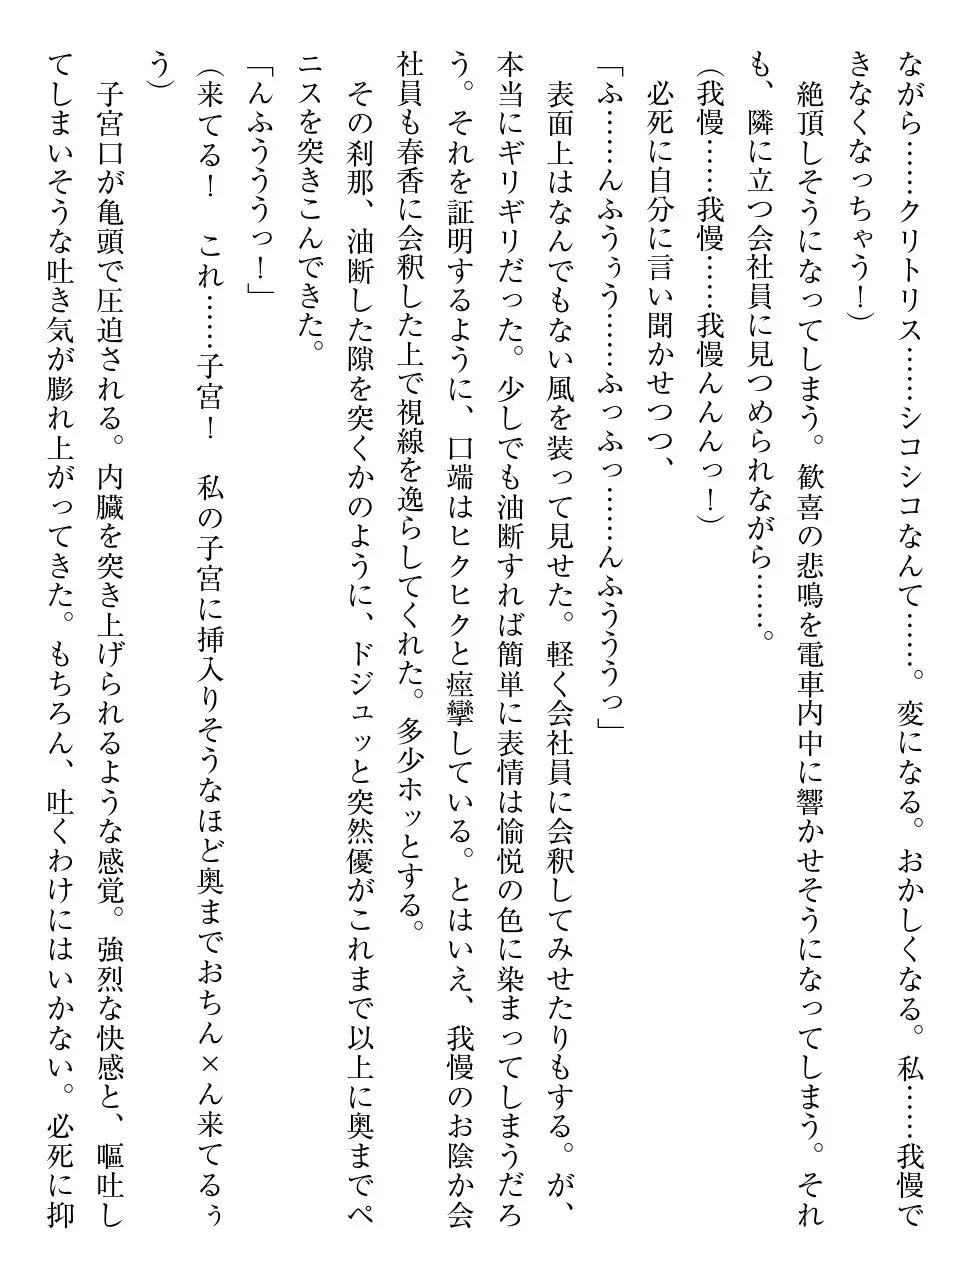 ながら……クリトリス……シコシコなんて……。変になる。おかしくなる。私……我慢で
きなくなっちゃう！）
　絶頂しそうになってしまう。歓喜の悲鳴を電車内中に響かせそうになってしまう。それ
も、隣に立つ会社員に見つめられながら……。
（我慢……我慢……我慢んんんっ！）
　必死に自分に言い聞かせつつ、
「ふ……んふうぅう……ふっふっ……んふうううっ」
　表面上はなんでもない風を装って見せた。軽く会社員に会釈してみせたりもする。が、
本当にギリギリだった。少しでも油断すれば簡単に表情は愉悦の色に染まってしまうだろ
う。それを証明するように、口端はヒクヒクと痙攣している。とはいえ、我慢のお陰か会
社員も春香に会釈した上で視線を逸らしてくれた。多少ホッとする。
　その刹那、油断した隙を突くかのように、ドジュッと突然優がこれまで以上に奥までペ
ニスを突きこんできた。
「んふうううっ！」
（来てる！　これ……子宮！　私の子宮に挿入りそうなほど奥までおちん×ん来てるぅ
う）
　子宮口が亀頭で圧迫される。内臓を突き上げられるような感覚。強烈な快感と、嘔吐し
てしまいそうな吐き気が膨れ上がってきた。もちろん、吐くわけにはいかない。必死に抑